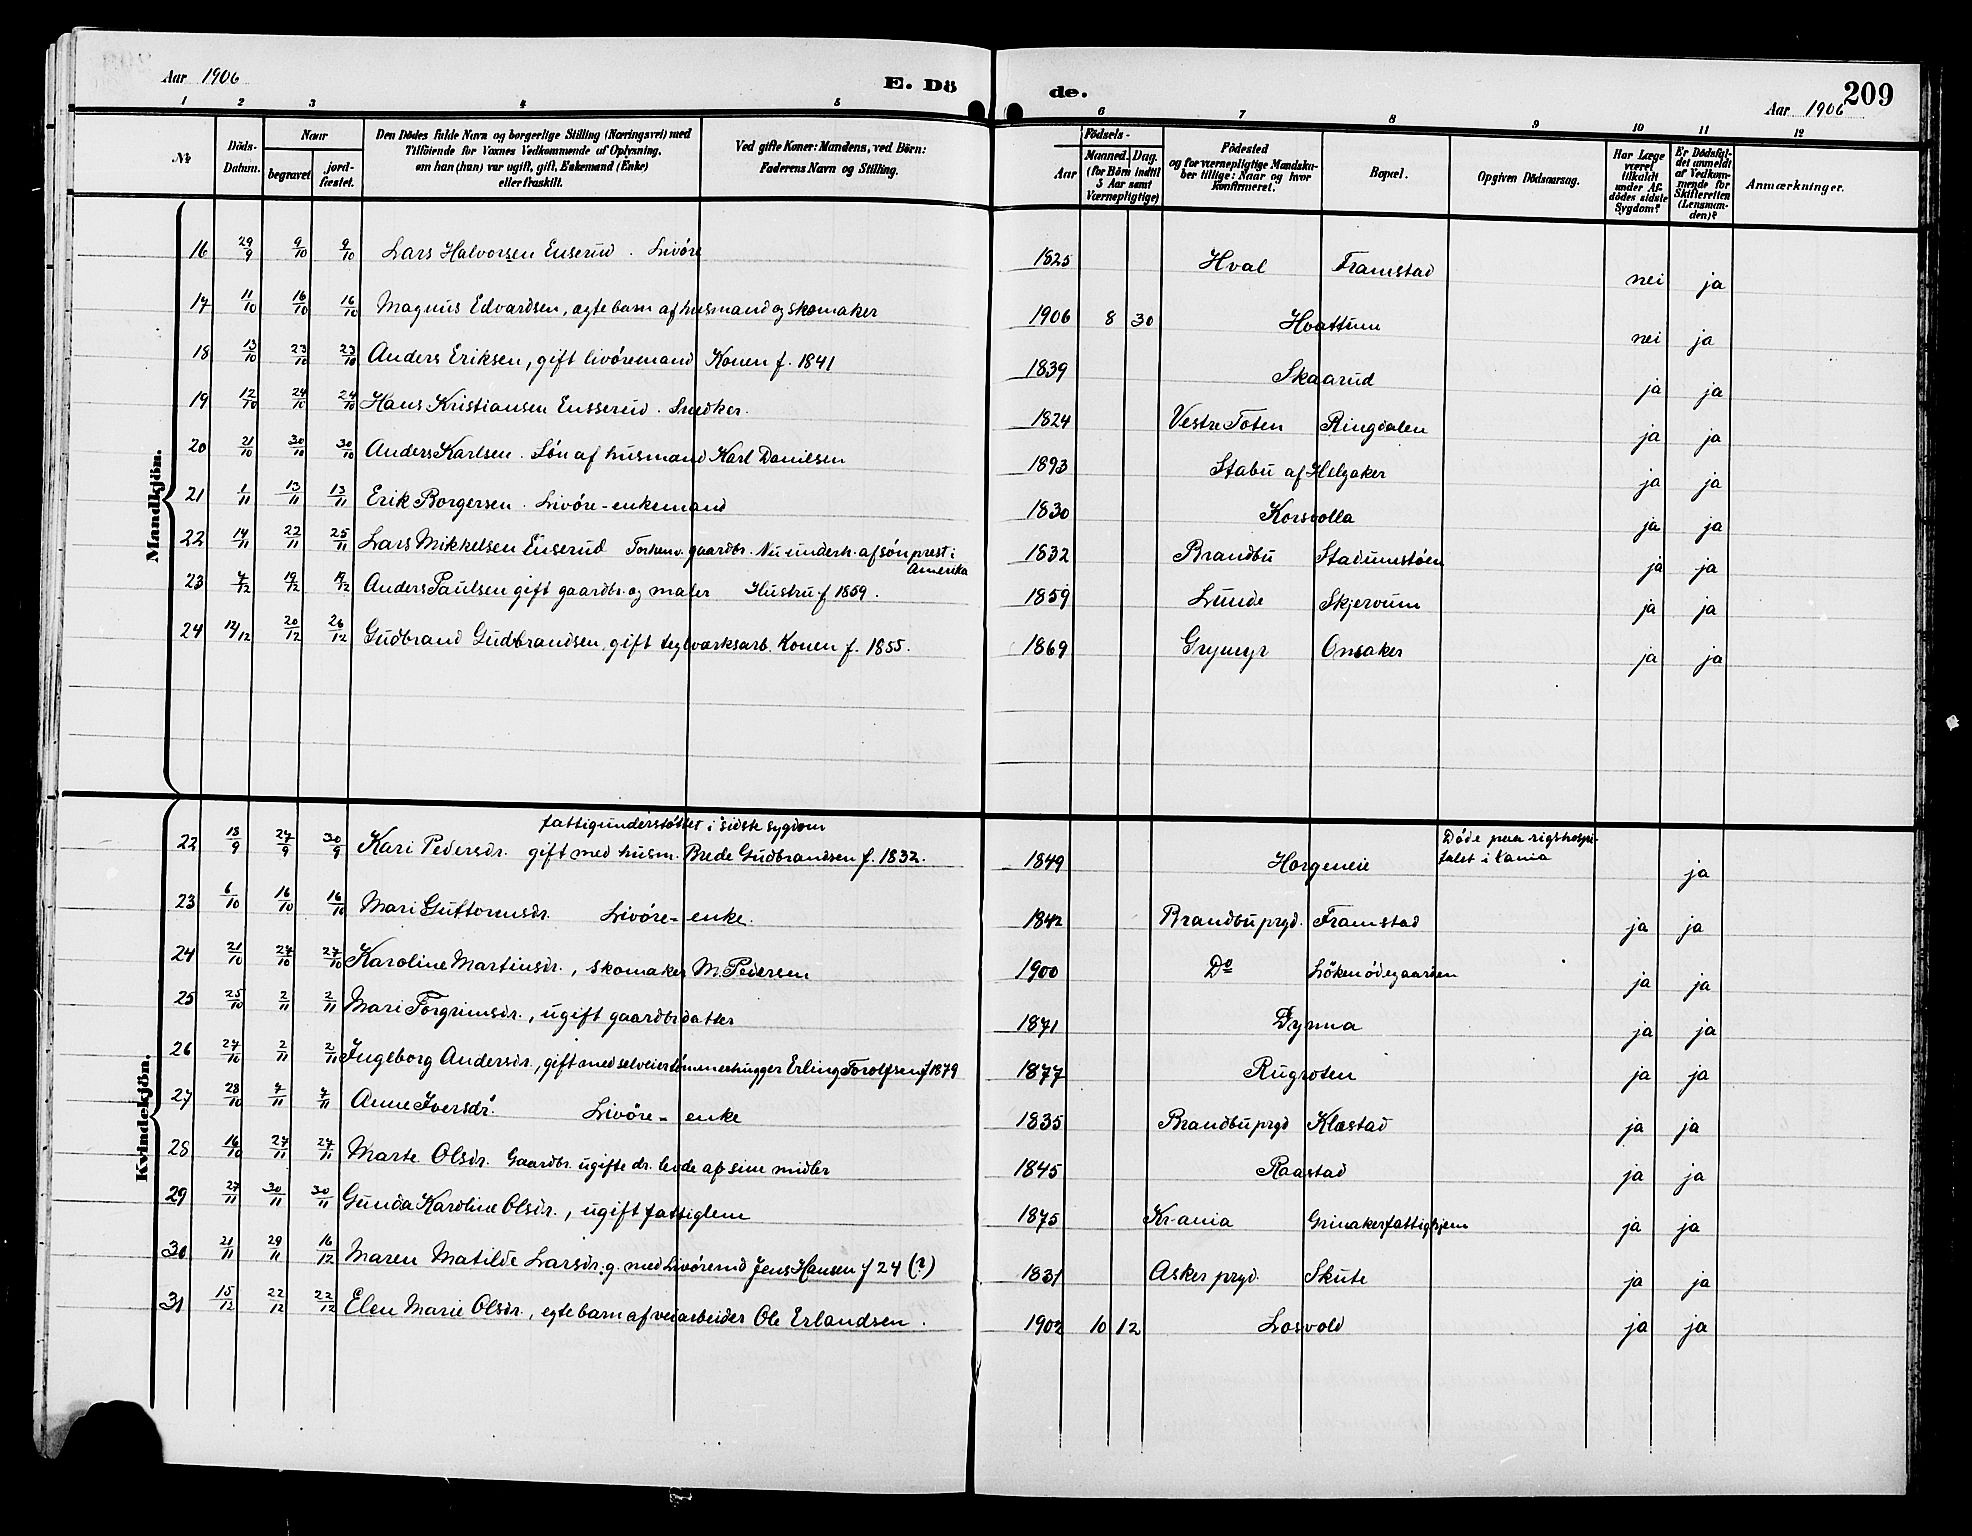 Aar 1906
E. Dö
de.
Aar 1906
209
1 2 3 4 5 6 7 8 9 10 11 12
№
Döds-Datum.
Naar
begravet
jord-fæstet.
Den Dödes fulde Navn og borgerlige Stilling (Næringsvei) med
Tilföiende for Voxnes Vedkommende af Oplysning,
om han (hun) var ugift, gift, Enkemand (Enke)
eller fraskilt.
Ved gifte Koner: Mandens, ved Börn:
Faderens Navn og Stilling.
Födsels-
Aar
Maaned. Dag.
(for Börn indtil
5 Aar samt
Værnepligtige)
Födested
og for værnepligtige Mandska-
ber tillige: Naar og hvor
konfirmeret.
Bopæl.
Opgiven Dödsaarsag.
Har Læge
været
tilkaldt
under Af-
dödes sidste
Sygdom?
Er Dödsfal-
det anmeldt
af Vedkom-
mende for
Skifteretten
(Lensman-
den)?
Anmærkninger.
Mandkjön.
16 29/9 9/10 9/10 Lars Halvorsen Enserud. Livøre 1825 Hval Framstad nei ja
17 11/10 16/10 16/10 Magnus Edvardsen, ægte barn af husmand og skomaker 1906 8 30 Hvattum nei ja
18 13/10 23/10 23/10 Anders Eriksen, gift livøremand Konen f. 1841 1839 Skaarud ja ja
19 12/10 24/10 24/10 Hans Kristiansen Ensserud. Snedker. 1824 Vestre Toten Ringdalen ja ja
20 21/10 30/10 30/10 Anders Karlsen. Søn af husmand Karl Danielsen 1893 Stabu af Helgaker ja ja
21 1/11 13/11 13/11 Erik Borgersen. Livøre-enkemand 1830 Korsvolla ja ja
22 14/11 22/11 25/11 Lars Mikkelsen Enserud Forhenv. gaardbr. Nu underh. af søn prest i
Amerika 1832 Brandbu Stadumstøen ja ja
23 7/12 19/12 19/12 Anders Paulsen gift gaardbr. og maler Hustru f 1859. 1859 Lunde Skjervum ja ja
24 12/12 20/12 26/12 Gudbrand Gudbrandsen, gift teglværksarb. Konen f. 1855. 1869 Grymyr Onsaker ja ja
Kvindekjön.
fattigunderstøttet i sidste sygdom
22 18/9 27/9 30/9 Kari Pedersdr. gift med husm. Brede Gudbrandsen f. 1832. 1849 Horgeneie Døde paa rigshospi-
talet i Kania ja
23 6/10 16/10 16/10 Mari Guttormsdr. Livøre-enke. 1842 Brandbu prgd. Framstad ja ja
24 21/10 27/10 27/10 Karoline Martinsdr., skomaker M. Pedersen 1900 Do Løkenødegaarden ja ja
25 25/10 2/11 2/11 Mari Torgrimsdr., ugift gaardbrdatter 1871 Dynna ja ja
26 27/10 2/11 2/11 Ingeborg Andersdr., gift med selveiertømmerhugger Erling Torolfsen f 1879 1877 Rugroten ja ja
27 28/10 7/11 7/11 Anne Iversdr. Livøre-enke 1835 Brandbu prgd Klæstad ja ja
28 16/10 27/11 27/11 Marte Olsdr. Gaardbr. ugifte dr. levde af sine midler 1845 Raastad ja ja
29 27/11 30/11 30/11 Gunda Karoline Olsdr., ugift fattiglem 1875 Kr-ania Grinakerfattighjem ja ja
30 21/11 29/11 16/12 Maren Matilde Larsdr. g. med Livøremd Jens Hansen f 24 (?) 1831 Asker prgd. Skute ja ja
31 15/12 22/12 22/12 Elen Marie Olsdr., egte barn af veiarbeider Ole Erlandsen. 1902 10 12 Losvold ja ja